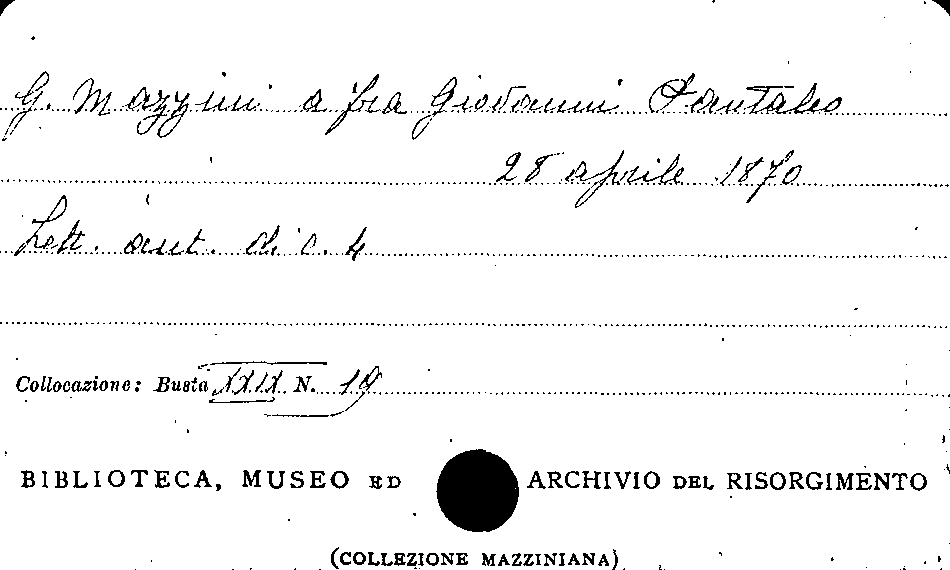 G. Mazzini a fra Giovanni Pantaleo
28 aprile 1870
Lett. aut. di c. 4
Collocazione: Busta XXIX N. 19
BIBLIOTECA, MUSEO ED ARCHIVIO DEL RISORGIMENTO
(COLLEZIONE MAZZINIANA)